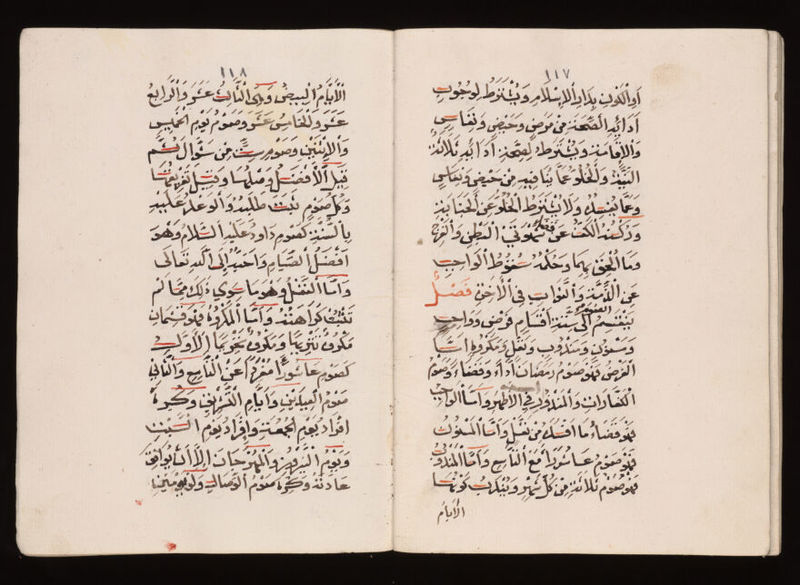 ١١٧
أو الكون بدار الإسلام ويشترط لوجوب
أدائه الصحة من مرض وحيض ونفاس
والإقامة ويشترط لصحة أدائه ثلاثة
النية والخلو عما ينافيه من حيض ونفاس
وعما يفسده ولا يشترط الخلو عن الجنابة
وركنه الكف عن قضاء شهوتي البطن والفرج
وما الحق بهما وحكمه سقوط الواجب
عن الذمة والثواب في الآخرة فصل
ينقسم الصوم إلى ستة أقسام فرض وواجب
ومسنون ومندوب ونفل ومكروه أما
الفرض فهو صوم رمضان أداء وقضاء وصوم
الكفارات والمنذور في الأظهر وأما الواجب
فهو قضاء ما أفسده من نفل وأما المسنون
فهو صوم عاشوراء مع التاسع وأما المندوب
فهو صوم ثلاثة من كل شهر ويندب كونها
الأيام
١١٨
الأيام البيض وهي الثالث عشر والرابع
عشر والخامس عشر وصوم يوم الخميس
والاثنين وصوم ست من شوال ثم
قيل الأفضل وصلها وقيل تفريقها
وكل صوم ثبت طلبه والوعد عليه
بالسنة كصوم داود عليه السلام وهو
أفضل الصيام وأحبه إلى الله تعالى
وأما النفل وهو ما سوى ذلك مما لم
تثبت كراهته وأما المكروه فهو قسمان
مكروه تنزيها ومكروه تحريما الأول
كصوم عاشورا مفردا عن التاسع والثاني
صوم العيدين وأيام التشريق وكره
افراد يوم الجمعة وافراد يوم السبت
ويوم النيروز والمهرجان إلا أن يوافق
عادته وكره صوم الوصال ولو يومين